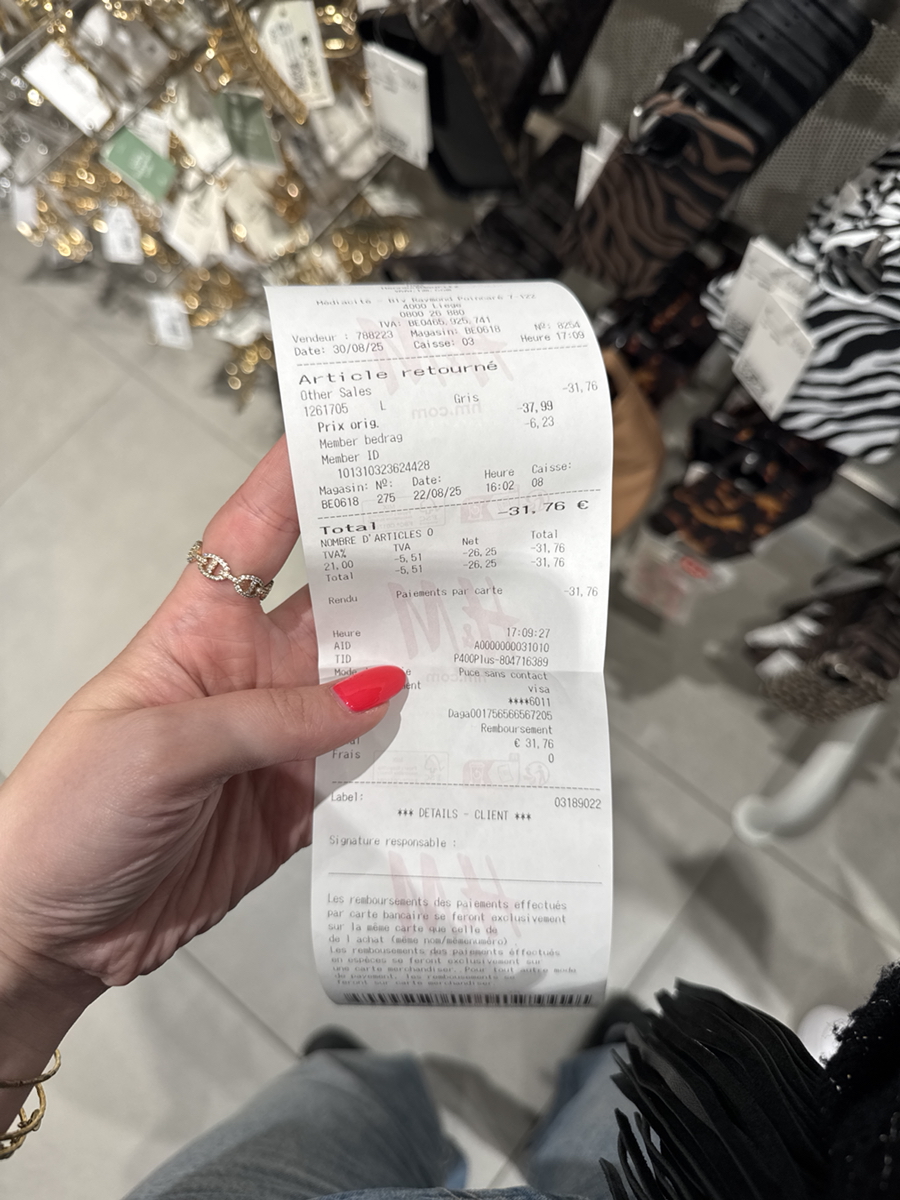 Médiacité - Blv Raymond Poincaré 7-122
4000 Liège
0800 26 880
IVA: BE0465.925.741
Vendeur : 788223 Magasin: BE0618 Nº: 8254
Date: 30/08/25 Caisse: 03 Heure 17:09
Article retourné
Other Sales -31,76
1261705 L Gris
Prix orig. -37,99
Member bedrag -6,23
Member ID
101310323624428
Magasin: Nº: Date: Heure Caisse:
BE0618 275 22/08/25 16:02 08
Total -31,76 €
NOMBRE D'ARTICLES 0
TVA% TVA Net Total
21,00 -5,51 -26,25 -31,76
Total -5,51 -26,25 -31,76
Rendu Paiements par carte -31,76
Heure 17:09:27
AID A0000000031010
TID P400Plus-804716389
Mode Puce sans contact
visa
****6011
Daga001756566567205
Remboursement
€ 31,76
Frais 0
Label: 03189022
*** DETAILS - CLIENT ***
Signature responsable :
Les remboursements des paiements effectués
par carte bancaire se feront exclusivement
sur la même carte que celle de
de l achat (même nom/mêmenuméro)
Les remboursements des paiements éffectués
en espèces se feront exclusivement sur
une carte merchandiser. Pour tout autre mode
de payement, les remboursements se
feront sur carte merchandiser.
H&M
hm.com